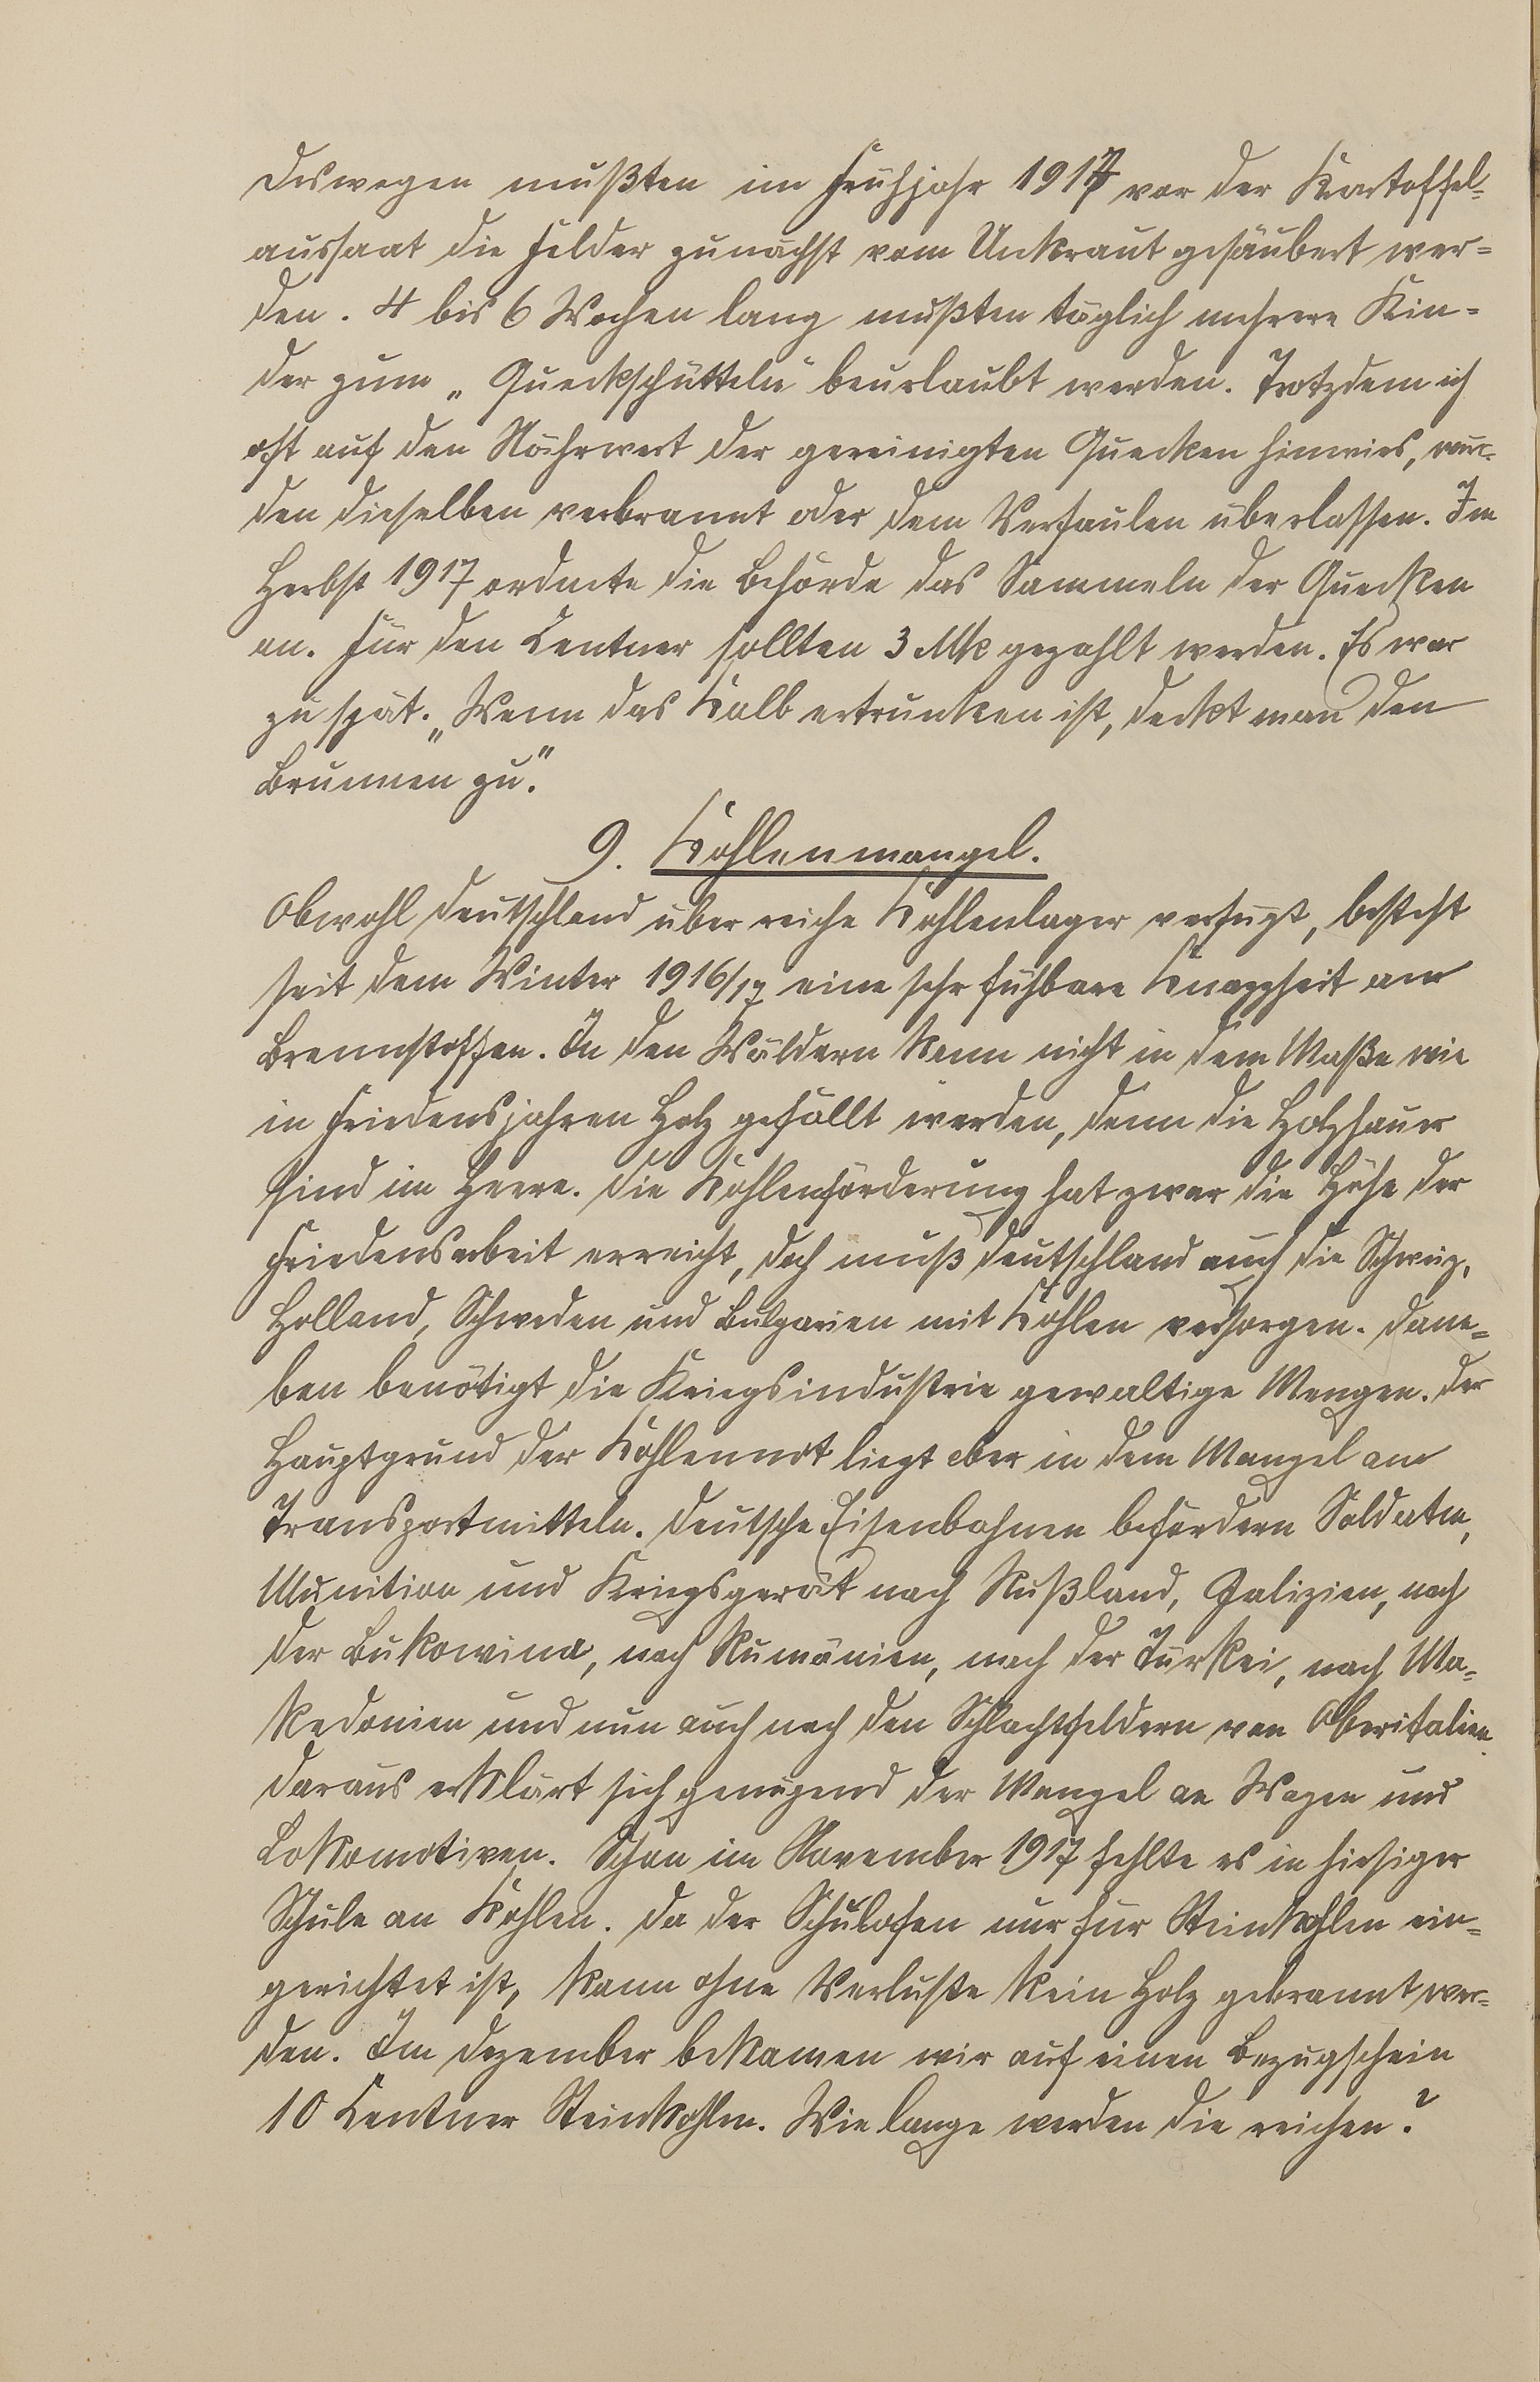 Deswegen mußten im Frühjahr 1917 vor der Kartoffel-
aussaat die Felder zunächst vom Unkraut gesäubert wer-
den. 4 bis 6 Wochen lang mußten täglich mehrere Kin-
der zum „Queckschütteln" beurlaubt werden. Trotzdem ich
oft auf den Nährwert der gereinigten Quecken hinwies, wur-
den dieselben verbrannt oder dem Verfaulen überlassen. Im
Herbst 1917 ordnete die Behörde das Sammeln der Quecken
an. Für den Centner sollten 3 Mk gezahlt werden. Es war
zu spät. „Wenn das Kalb ertrunken ist, deckt man den
Brunnen zu."
9. Kohlenmangel.
Obwohl Deutschland über reiche Kohlenlager verfügt, besteht
seit dem Winter 1916/17 eine sehr fühlbare Knappheit an
Brennstoffen. In den Wäldern kann nicht in dem Maße wie
in Friedensjahren Holz gefällt werden, denn die Holzhauer
sind im Heere. Die Kohlenförderung hat zwar die Höhe der
Friedensarbeit erreicht, doch muß Deutschland auch die Schweiz,
Holland, Schweden und Bulgarien mit Kohlen versorgen. Dane-
ben benötigt die Kriegsindustrie gewaltige Mengen. Der
Hauptgrund der Kohlennot liegt aber in dem Mangel an
Transportmitteln. Deutsche Eisenbahnen befördern Soldaten,
Munition und Kriegsgerät nach Rußland, Galizien, nach
der Bukowina, nach Rumänien, nach der Türkei, nach Ma-
kedonien und nun auch nach den Schlachtfeldern von Oberitalien.
Daraus erklärt sich genügend der Mangel an Wagen und
Lokomotiven. Schon im November 1917 fehlte es in hiesiger
Schule an Kohlen. Da der Schulofen nur für Steinkohlen ein-
gerichtet ist, kann ohne Verluste kein Holz gebrannt wer-
den. Im Dezember bekamen wir auf einen Bezugschein
10 Centner Steinkohlen. Wie lange werden die reichen?